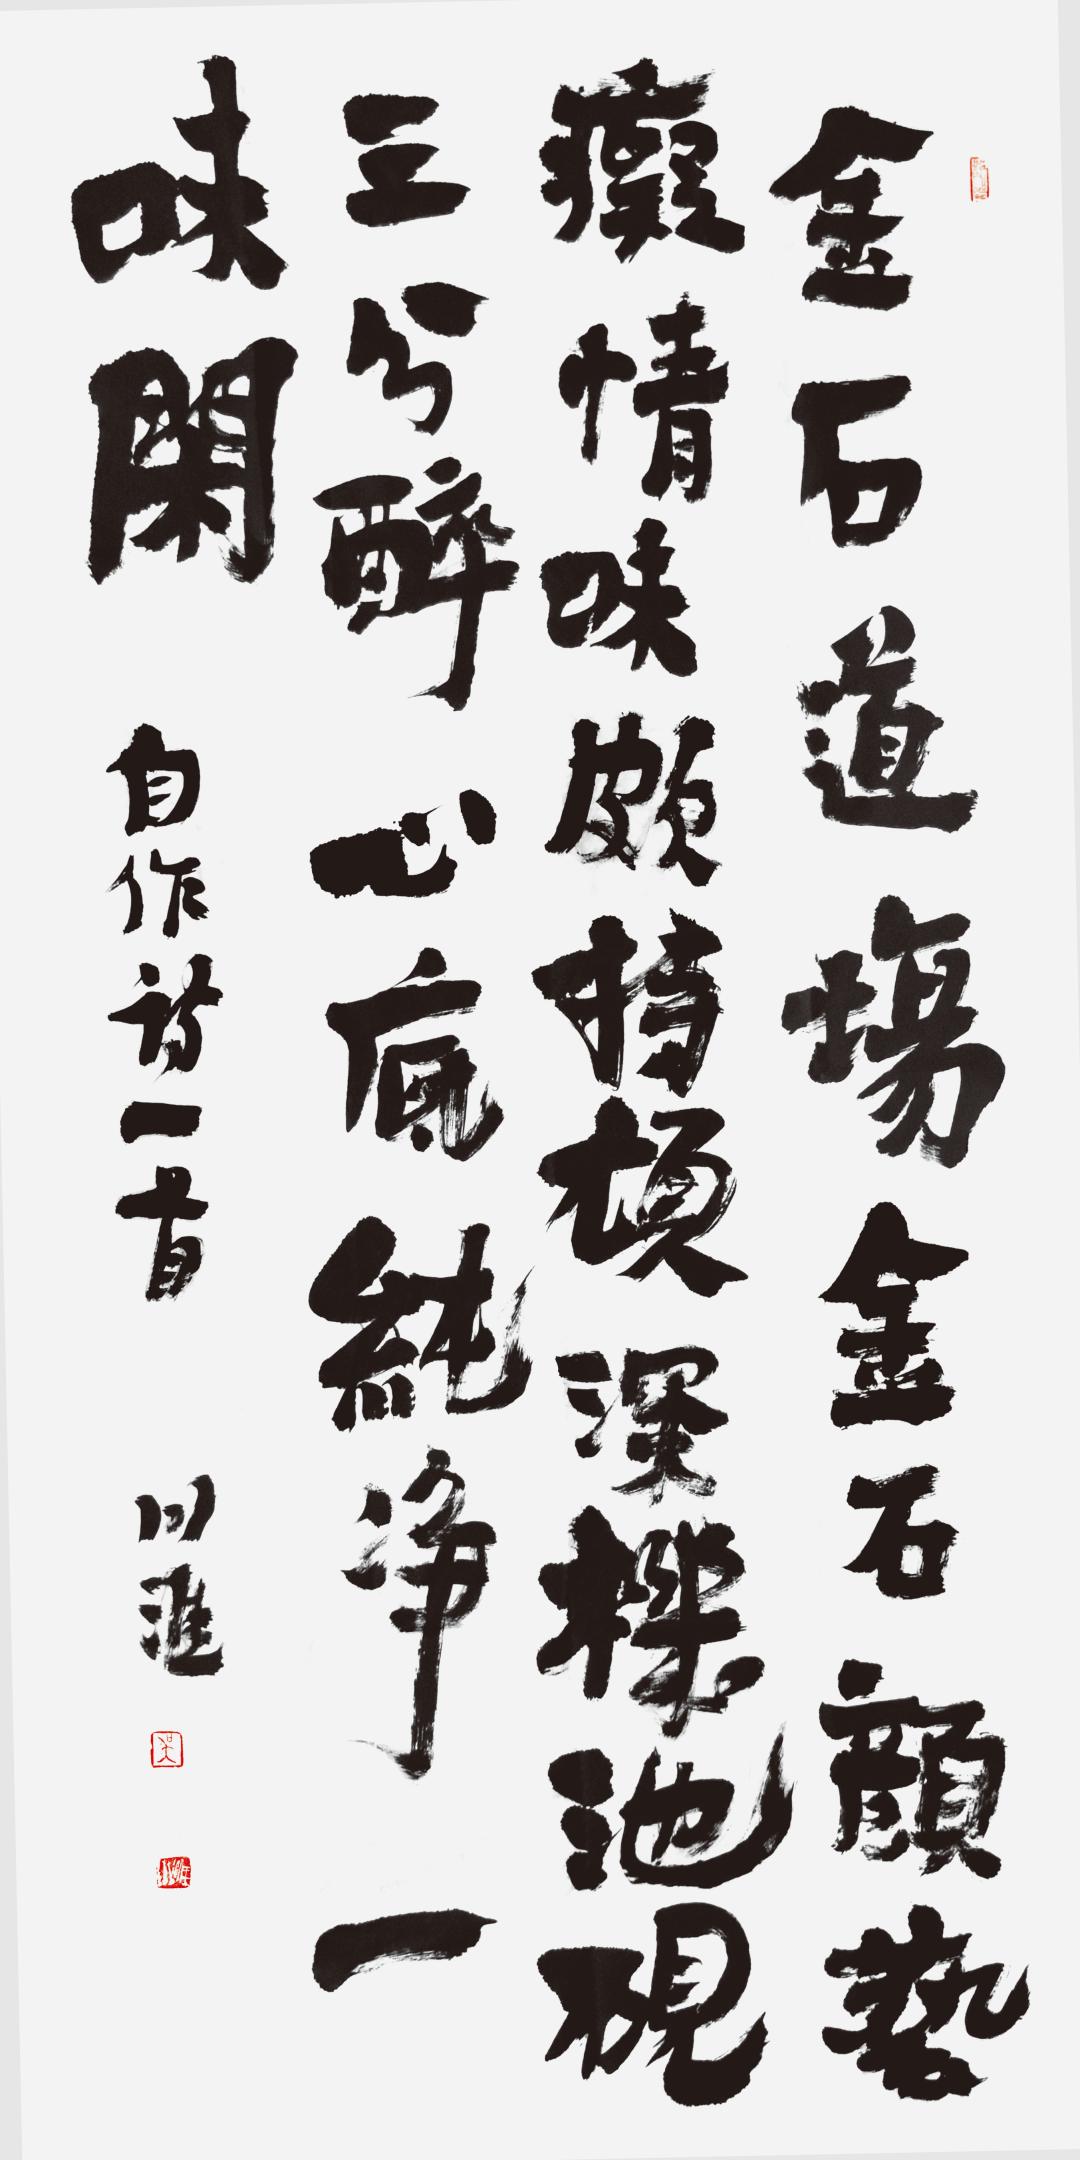 金石道場金石顏藝
癡情味頗持頑深機池硯
三分醉心底純净一
味閑
自作詩一首